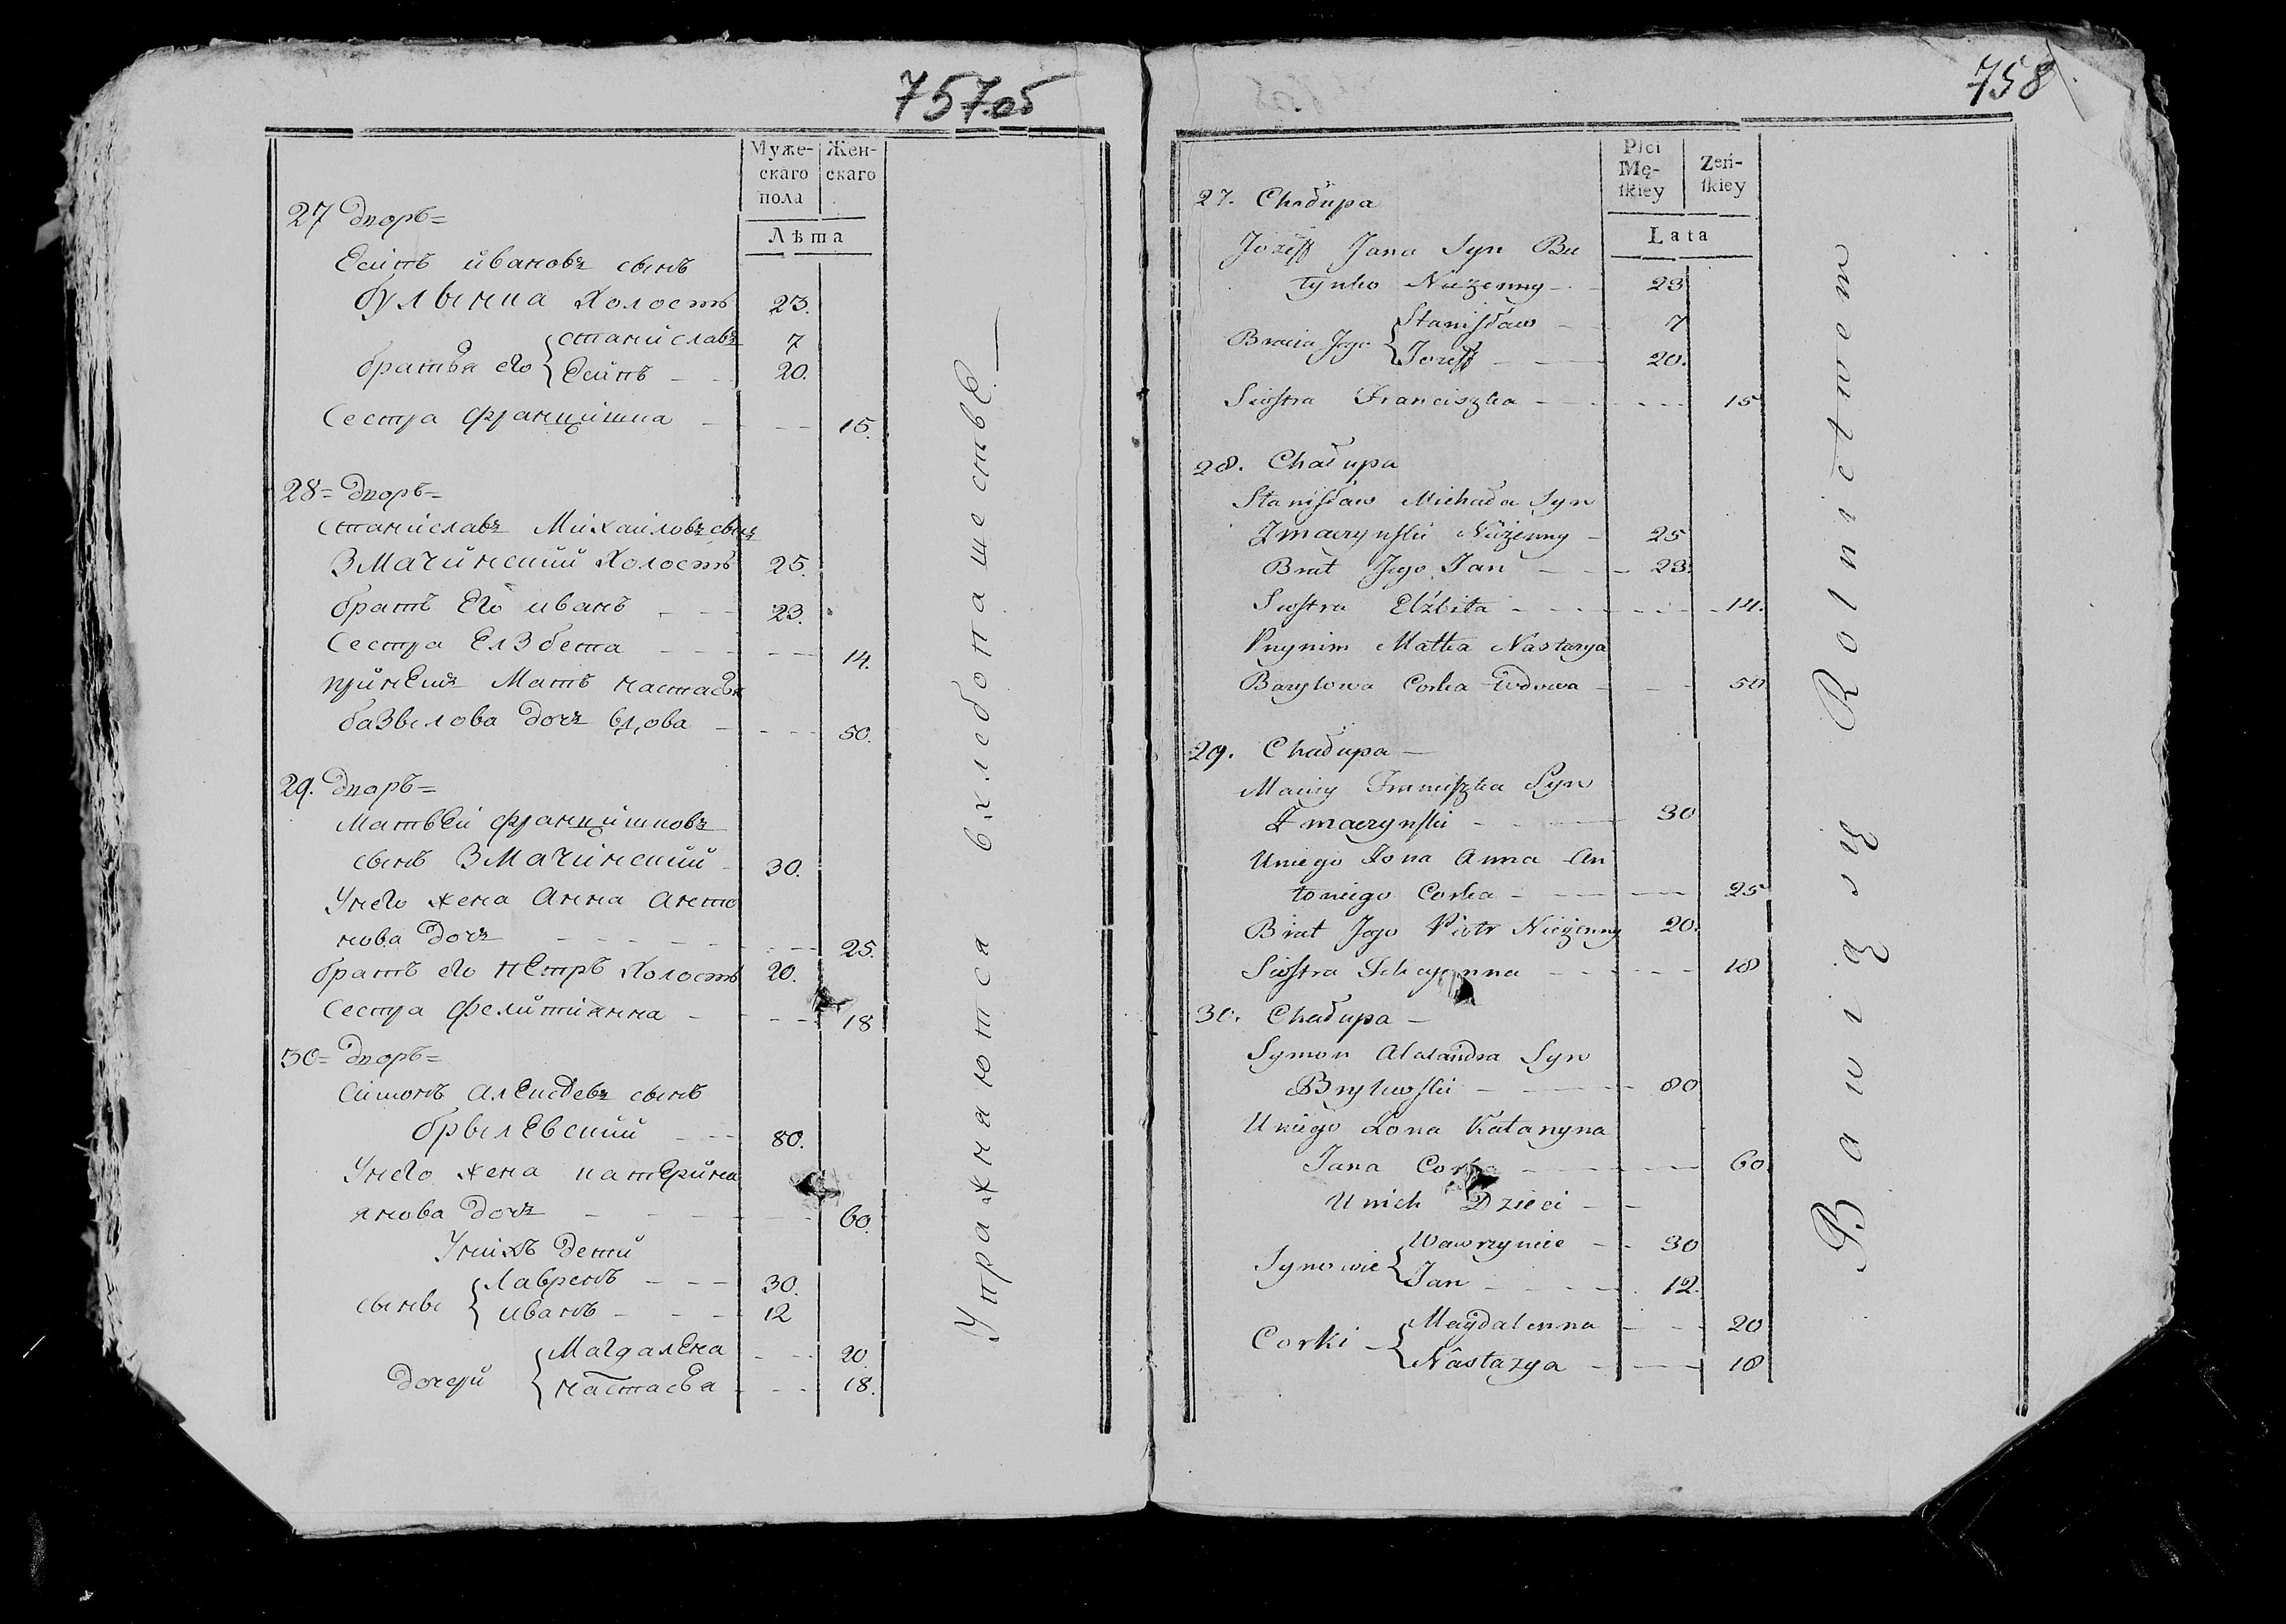 757об
Муже-
скаго
пола
Жен-
скаго
Лѣта
27 Дворъ=
Есипъ ивановъ сынъ
булынка холостъ 23.
братья его { станиславъ 7
Есипъ - - 20.
Сестра францишка - - - 15.
28= Дворъ=
станиславъ Михаиловъ сынъ
Змачинский холостъ 25.
братъ Его иванъ - - 23.
Сестра Елзбета - - - - 14.
принемъ Мать настасья
базылова дочь вдова - - - 50.
29. Дворъ=
Матвей францишковъ
сынъ Змачинский - 30.
Унего жена Анна Анто
нова дочь - - - - 25.
братъ его пЕтръ холостъ 20.
Сестра - - - 18
30= Дворъ=
симонъ сынъ
брылЕвский - - - 80.
Унего жена катерина
янова дочь - - - - 60.
Унихъ дети
сынвы { Лавренъ - - - 30.
иванъ - - - 12
дочери { МагдалЕна - - - 20.
настасья - - - 18.
Упражняются в хлебопашествЕ. —
758
Płci
Mę-
ſkiey
Zeń-
ſkiey
Lata
27. Chałupa
Jozeff Jana Syn Bu
łynko Niezenny - - 23
Bracia Jego { Stanisław - - 7
Jozeff - - - 20.
Siostra Franciszka - - - - 15
28. Chałupa
Stanisław Michała Syn
Zmaczynski Nieżenny - 25
Brat Jego Jan - - - 23.
Siostra Elżbieta - - - - - 14.
Przynim Matka Nastazya
Bazylowa Corka Wdowa - - - 50
29. Chałupa —
Maciey Franciszka Syn
Zmaczynski - - - 30
Uniego Zona Anna An
toniego Corka - - - - 25
Brat Jego Piotr Nieżenny 20.
Siostra - - - - 18
30. Chałupa —
Symon Alexandra Syn
Brylewski - - - - 80
Uniego Zona Katarzyna
Jana Corka - - - - 60.
Unich Dzieci - -
Synowie { Wawrzyniec - - 30
Jan - - - - 12.
Corki - { Magdalenna - - - 20
Nastazya - - - 18
Bawią się Rolnictwem